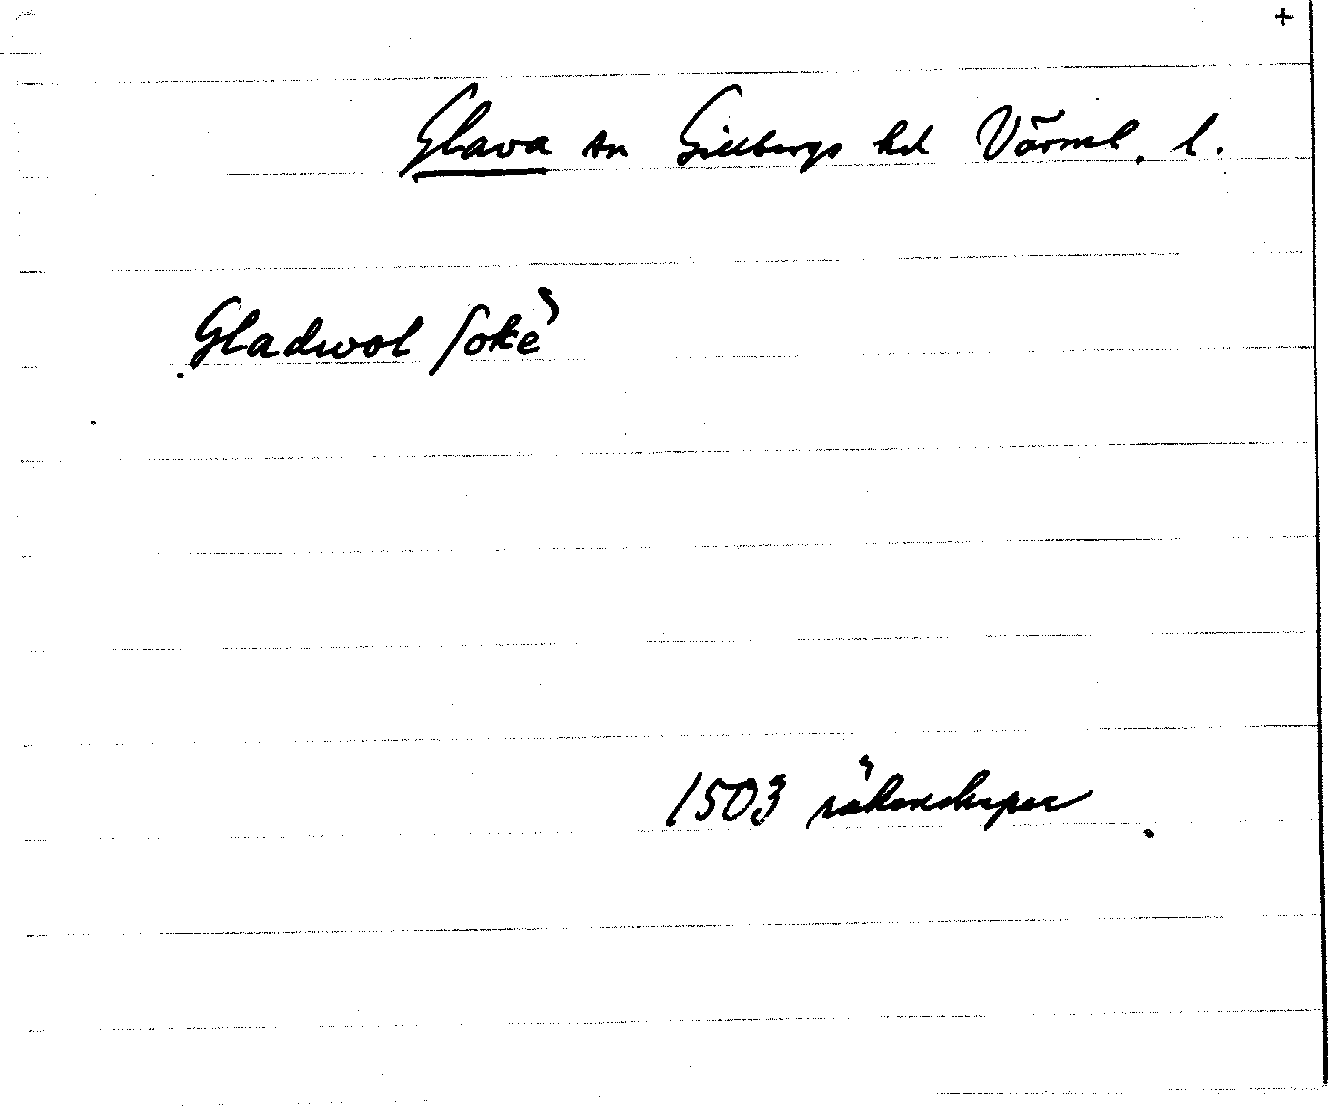 +
Glava sn Gillbergs hd Värml. l.
Gladwol soke
1503 räkenskaper